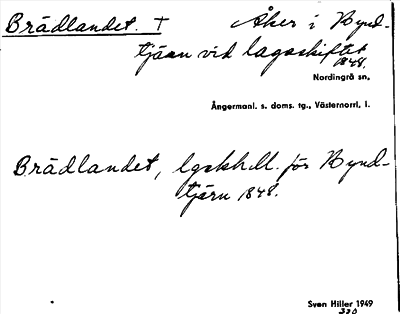 Brädlandet. † Åker i Bynd-
tjärn vid lagaskiftet
1848.
Nordingrå sn,
Ångermanl. s. doms. tg., Västernorrl. l.
Brädlandet, lgskhdl. för Bynd-
tjärn 1848.
Sven Hiller 1949
320